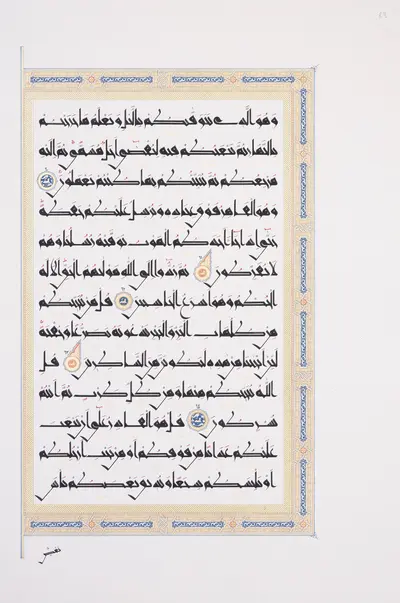 وهو الذي يتوفكم باليل ويعلم ما جرحتم
بالنهار ثم يبعثكم فيه ليقضى اجل مسمى ثم اليه
مرجعكم ثم ينبئكم بما كنتم تعملون
وهو القاهر فوق عباده ويرسل عليكم حفظة
حتى اذا جاء احدكم الموت توفته رسلنا وهم
لا يفرطون ثم ردوا الى الله مولهم الحق الا له
الحكم وهو اسرع الحاسبين قل من ينجيكم
من ظلمات البر والبحر تدعونه تضرعا وخفية
لئن انجينا من هذه لنكونن من الشاكرين قل
الله ينجيكم منها ومن كل كرب ثم انتم
تشركون قل هو القادر على ان يبعث
عليكم عذابا من فوقكم او من تحت ارجلكم
او يلبسكم شيعا ويذيق بعضكم باس
بعض